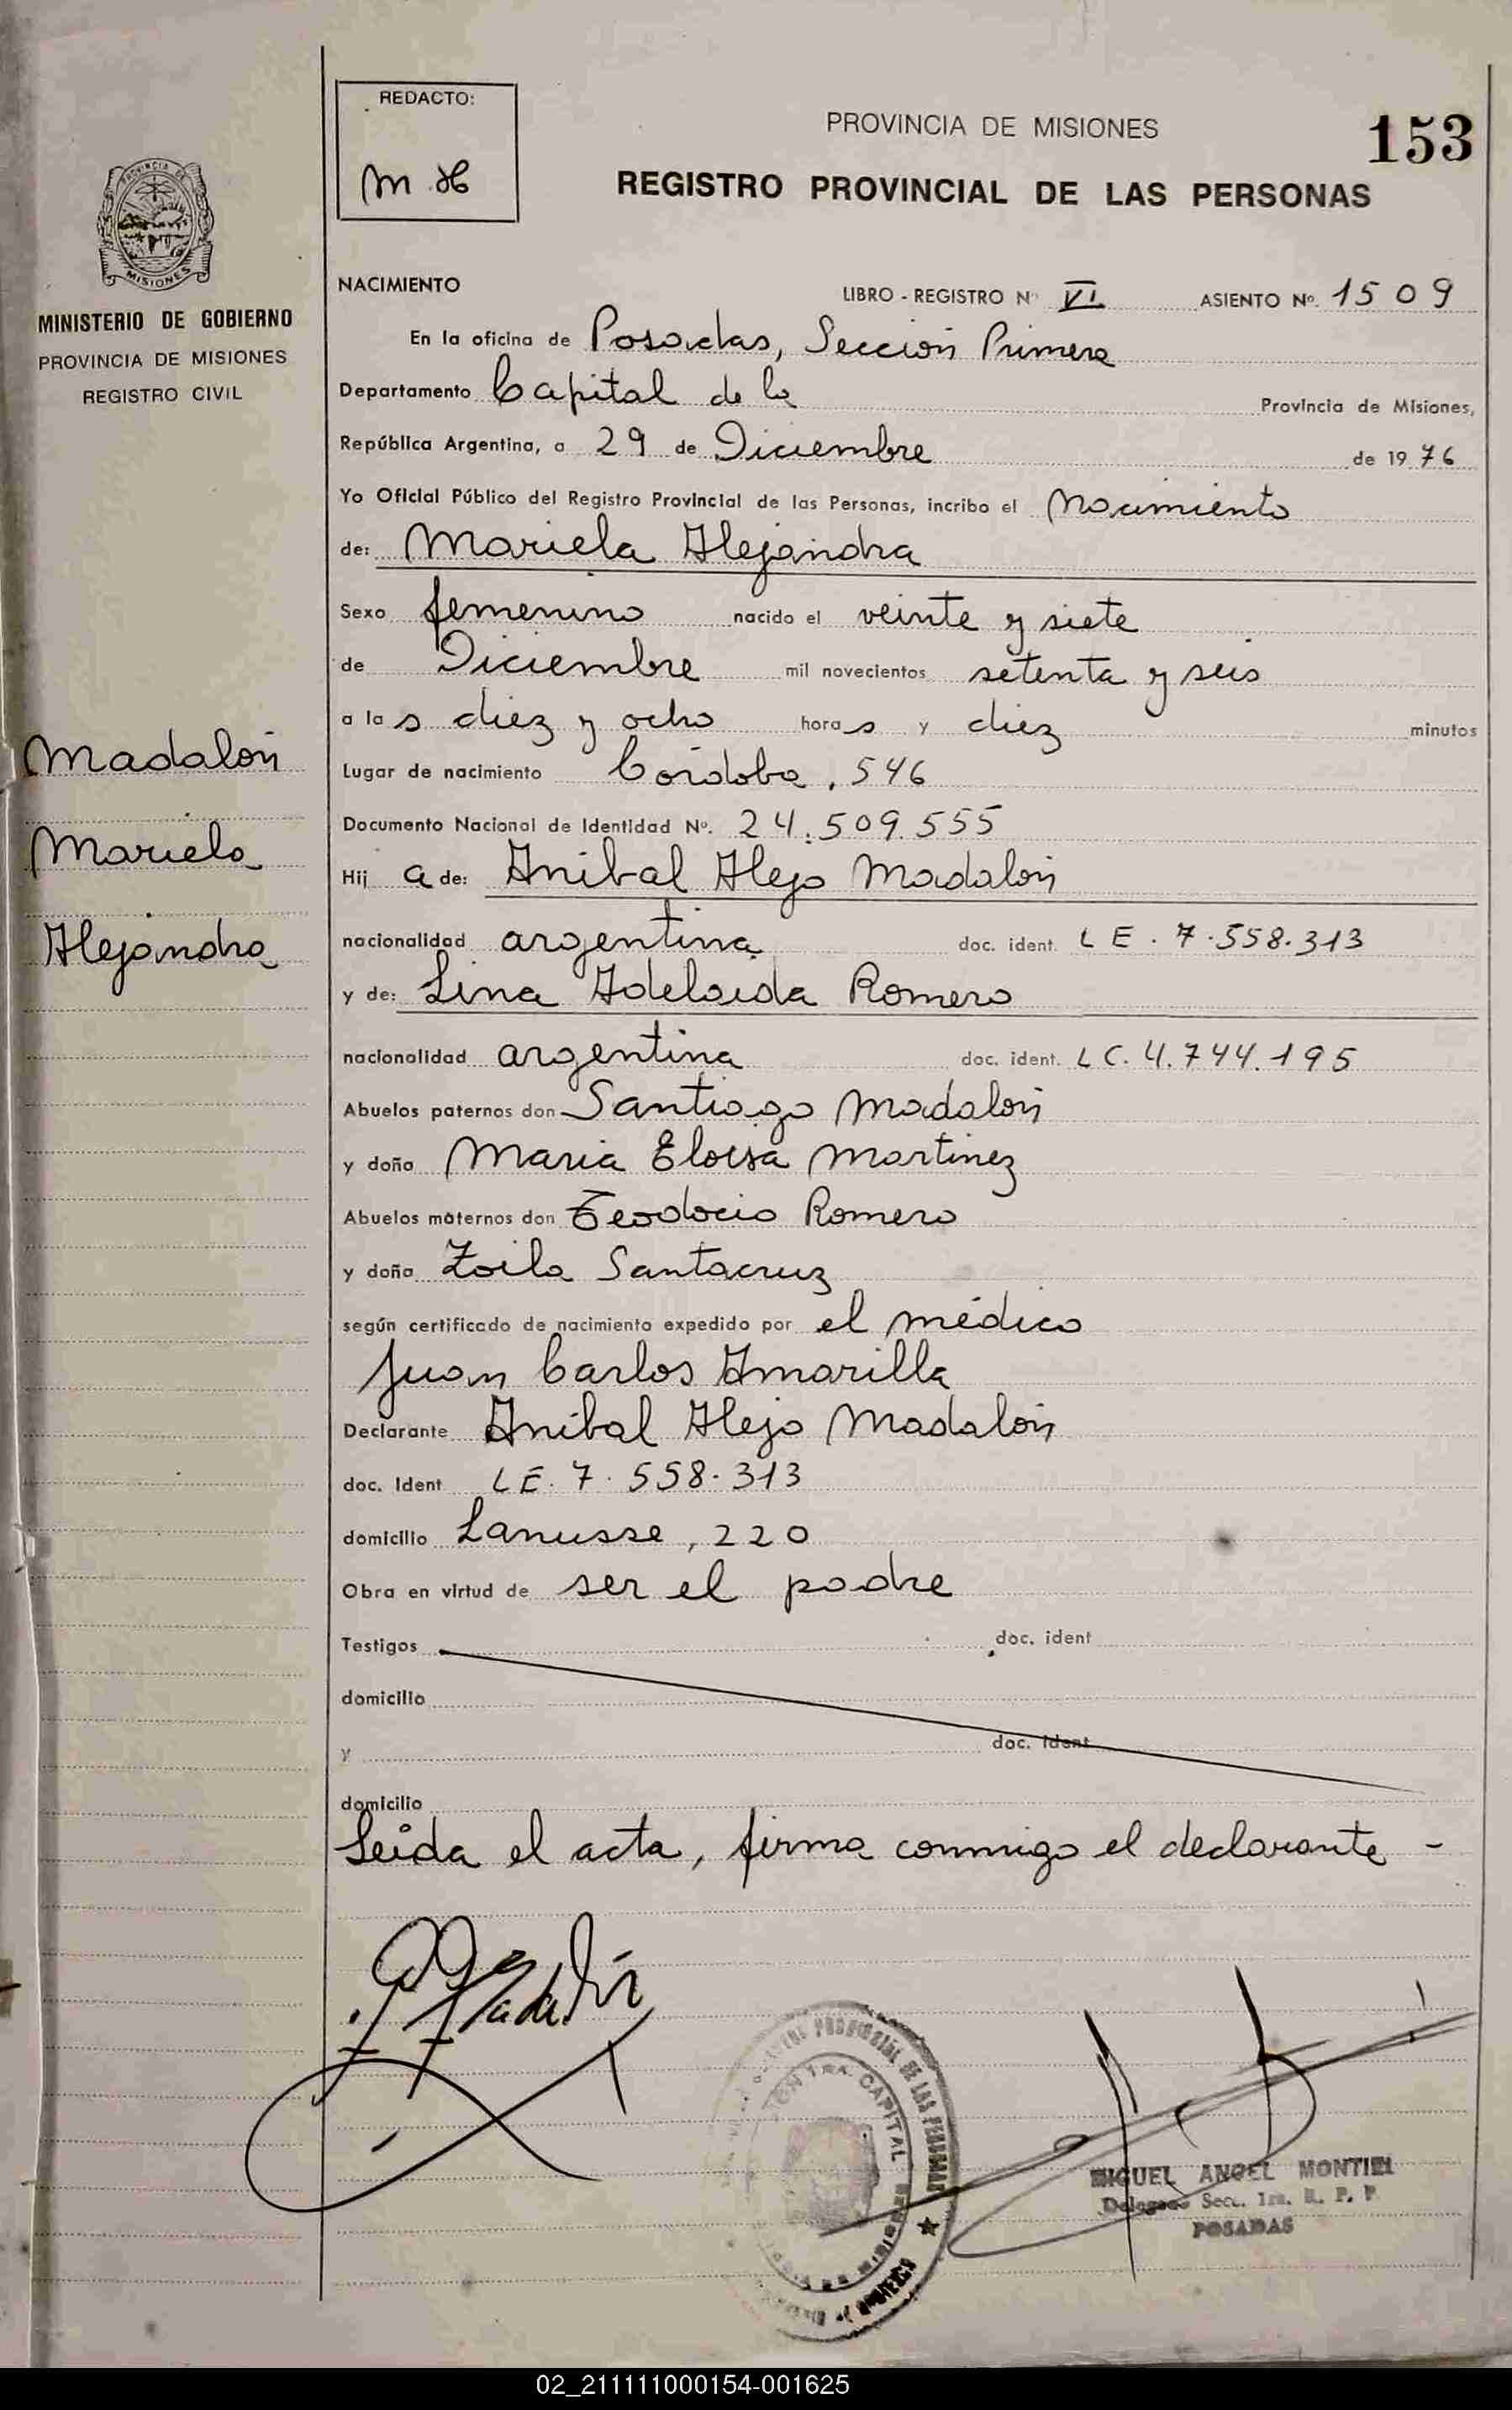 REDACTO:
PROVINCIA DE MISIONES
153
REGISTRO PROVINCIAL DE LAS PERSONAS
MISIONES
MINISTERIO DE GOBIERNO
PROVINCIA DE MISIONES
REGISTRO CIVIL
NACIMIENTO
LIBRO - REGISTRO Nº VI ASIENTO Nº. 1509
En la oficina de Posadas, Sección Primera
Departamento Capital de la Provincia de Misiones,
República Argentina, a 29 de Diciembre de 1976
Yo Oficial Público del Registro Provincial de las Personas, incribo el Nacimiento
de: Mariela Alejandra
Sexo femenino nacido el veinte y siete
de Diciembre mil novecientos setenta y seis
a las diez y ocho horas y diez minutos
Lugar de nacimiento Córdoba, 546
Documento Nacional de Identidad Nº. 24.509.555
Hij a de: Anibal Alejo Madalón
nacionalidad argentina doc. ident. LE. 7.558.313
y de: Lina Adelaida Romero
nacionalidad argentina doc. ident. LC. 4.744.195
Abuelos paternos don Santiago Madalón
y doña Maria Eloisa Martinez
Abuelos maternos don Teodocio Romero
y doña Zoila Santacruz
según certificado de nacimiento expedido por el médico
Juan Carlos Amarilla
Declarante Aníbal Alejo Madalón
doc. Ident LE. 7.558.313
domicilio Lanusse, 220
Obra en virtud de ser el padre
Testigos doc. ident
domicilio
y doc. ident
domicilio
Leída el acta, firma conmigo el declarante -
Madalón
Mariela
Alejandra
MIGUEL ANGEL MONTIEL
Delegado Secc. 1ra. R. P. P.
POSADAS
02_211111000154-001625